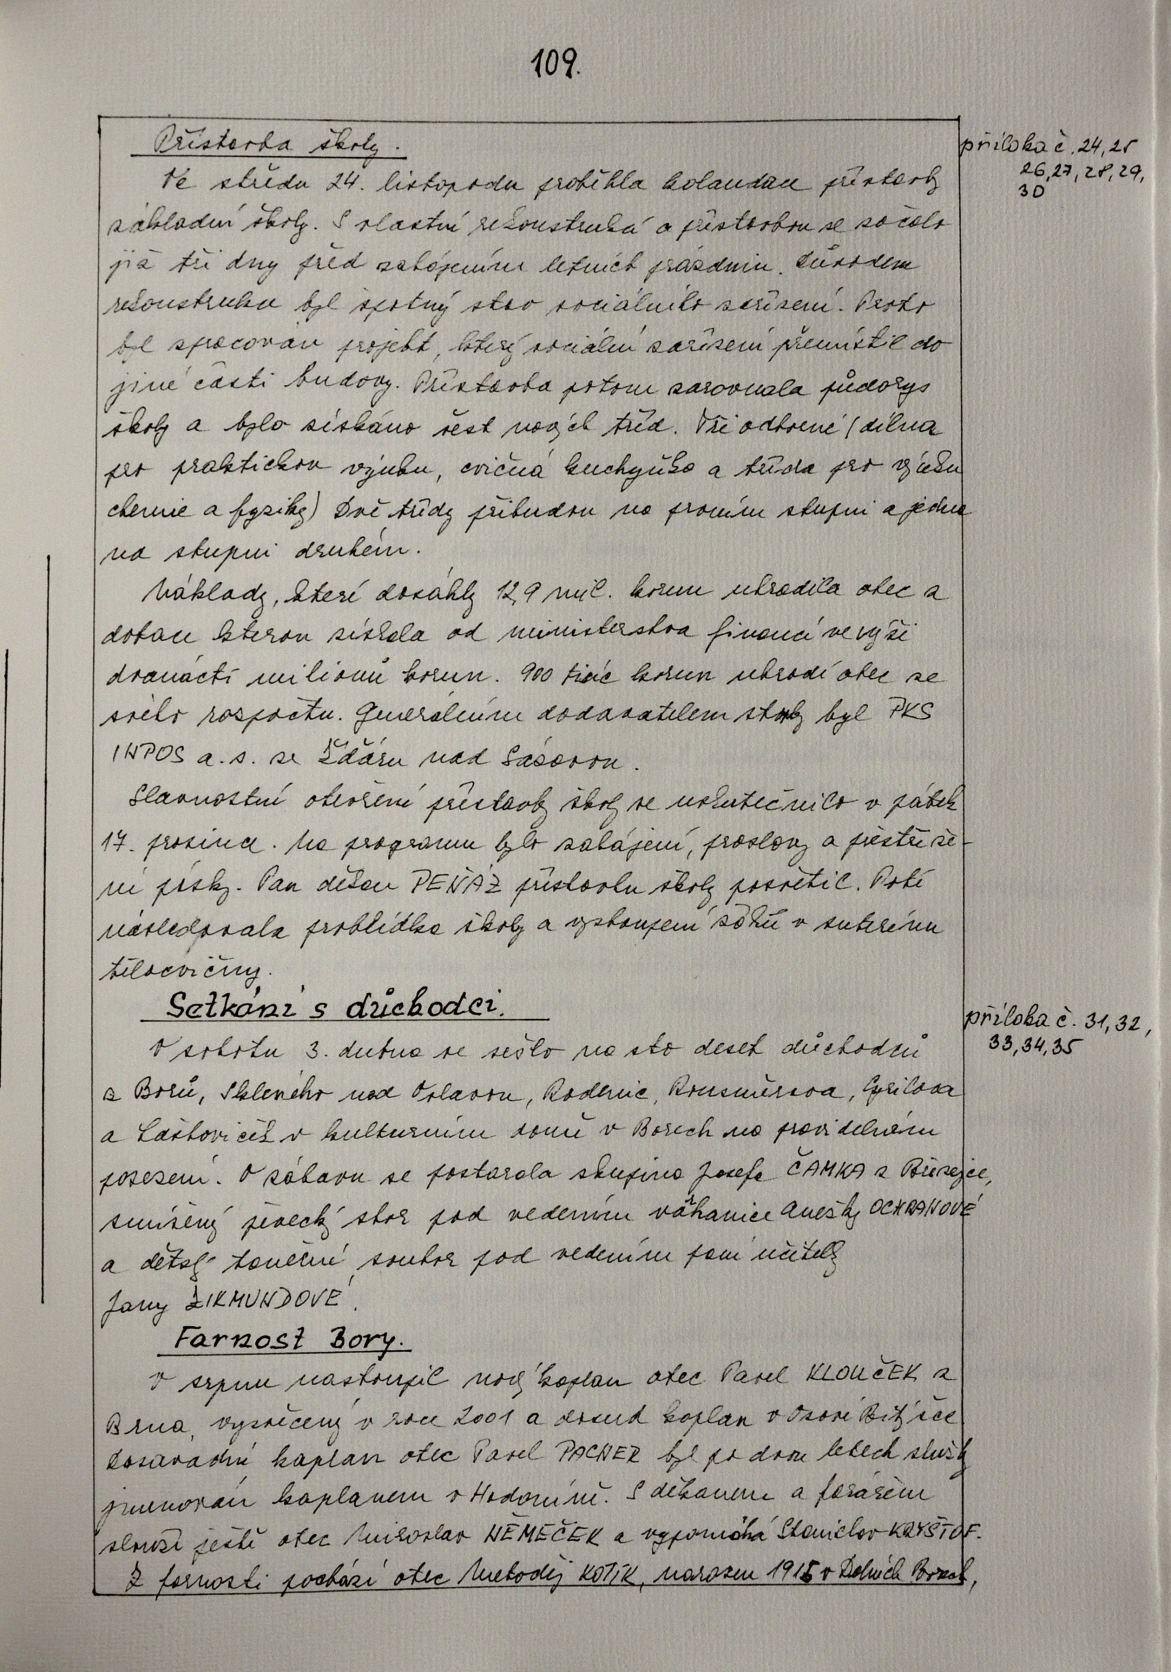 109.
Přístavba školy.
příloha č. 24, 25
26, 27, 28, 29,
30
Ve středu 24. listopadu proběhla kolaudace přístavby
základní školy. S vlastní rekonstrukcí a přístavbou se začalo
již tři dny před zahájením letních prázdnin. Důvodem
rekonstrukce byl špatný stav sociálního zařízení. Proto
byl zpracován projekt, který sociální zařízení přemístil do
jiné části budovy. Přístavba potom zarovnala půdorys
školy a bylo získáno šest nových tříd. Tři odborné (dílna
pro praktickou výuku, cvičná kuchyňka a třída pro výuku
chemie a fyziky) Dvě třídy přibudou na prvním stupni a jedna
na stupni druhém.
Náklady, které dosáhly 12,9 mil. korun uhradila obec a
dotace kterou získala od ministerstva financí ve výši
dvanácti milionů korun. 900 tisíc korun uhradí obec ze
svého rozpočtu. Generálním dodavatelem stavby byl PKS
INPOS a.s. ze Žďáru nad Sázavou.
Slavnostní otevření přístavby školy se uskutečnilo v pátek
17. prosince. Na programu bylo zahájení, proslovy a přestřiže-
ní pásky. Pan děkan PEŇÁZ přístavbu školy posvětil. Poté
následovala prohlídka školy a vystoupení žáků v suterénu
tělocvičny.
Setkání s důchodci.
příloha č. 31, 32,
33, 34, 35
V sobotu 3. dubna se sešlo na sto deset důchodců
z Borů, Skleného nad Oslavou, Radenic, Rousměrova, Cyrilova
a Laštoviček v kulturním domě v Borech na pravidelném
posezení. O zábavu se postarala skupina Josefa ČAMKA z Březejce,
smíšený pěvecký sbor pod vedením varhanice Anežky OCHRANOVÉ
a dětský taneční soubor pod vedením paní učitelky
Jany ZIKMUNDOVÉ.
Farnost Bory.
V srpnu nastoupil nový kaplan otec Pavel KLOUČEK z
Brna, vysvěcený v roce 2001 a dosud kaplan v Osové Bítýšce
Dosavadní kaplan otec Pavel PACNER byl po dvou letech služby
jmenován kaplanem v Hodoníně. S děkanem a farářem
slouží ještě otec Miroslav NĚMEČEK a vypomáhá Stanislav KRYŠTOF.
Z farnosti pochází otec Metoděj KOTÍK, narozen 1915 v Dolních Borech,